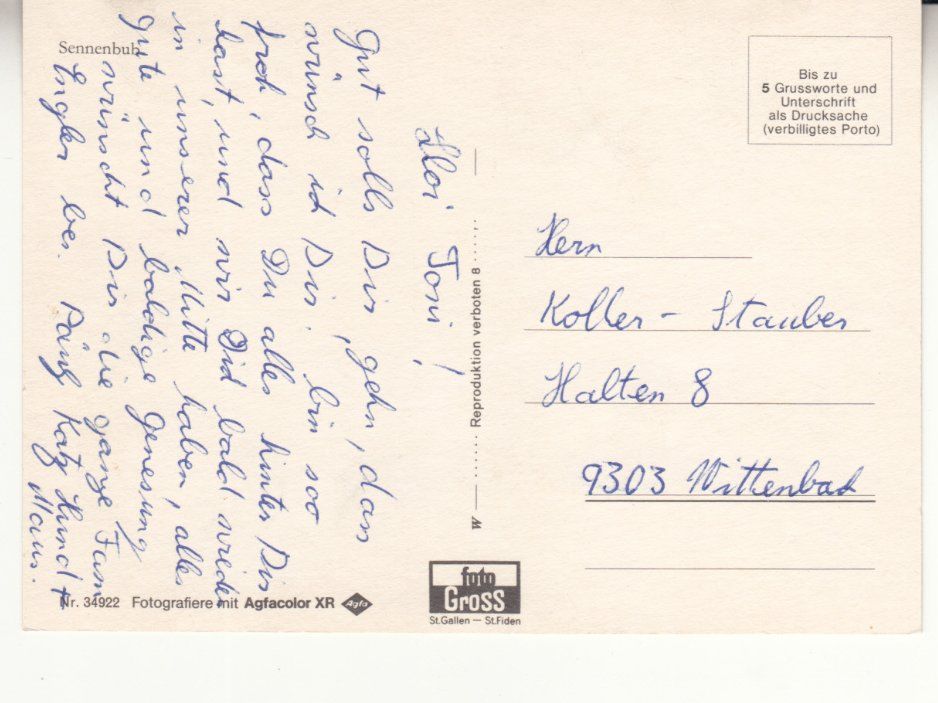 Sennenbub
Hoi Toni!
Gut solls Dir gehn, dass
wünsch ich Dir. bin soo
froh, dass Du alles hinter Dir
hast, und wir Dich bald wieder
in unserer Mitte haben, alles
gute und baldige Genesung
wünscht Dir die ganze Fam
Engler bei. Päng Katz Hund +
Maus.
Nr. 34922 Fotografiere mit Agfacolor XR Agfa
W Reproduktion verboten 8
foto
Gross
St.Gallen — St.Fiden
Bis zu
5 Grussworte und
Unterschrift
als Drucksache
(verbilligtes Porto)
Herrn
Koller - Stauber
Halten 8
9303 Wittenbach